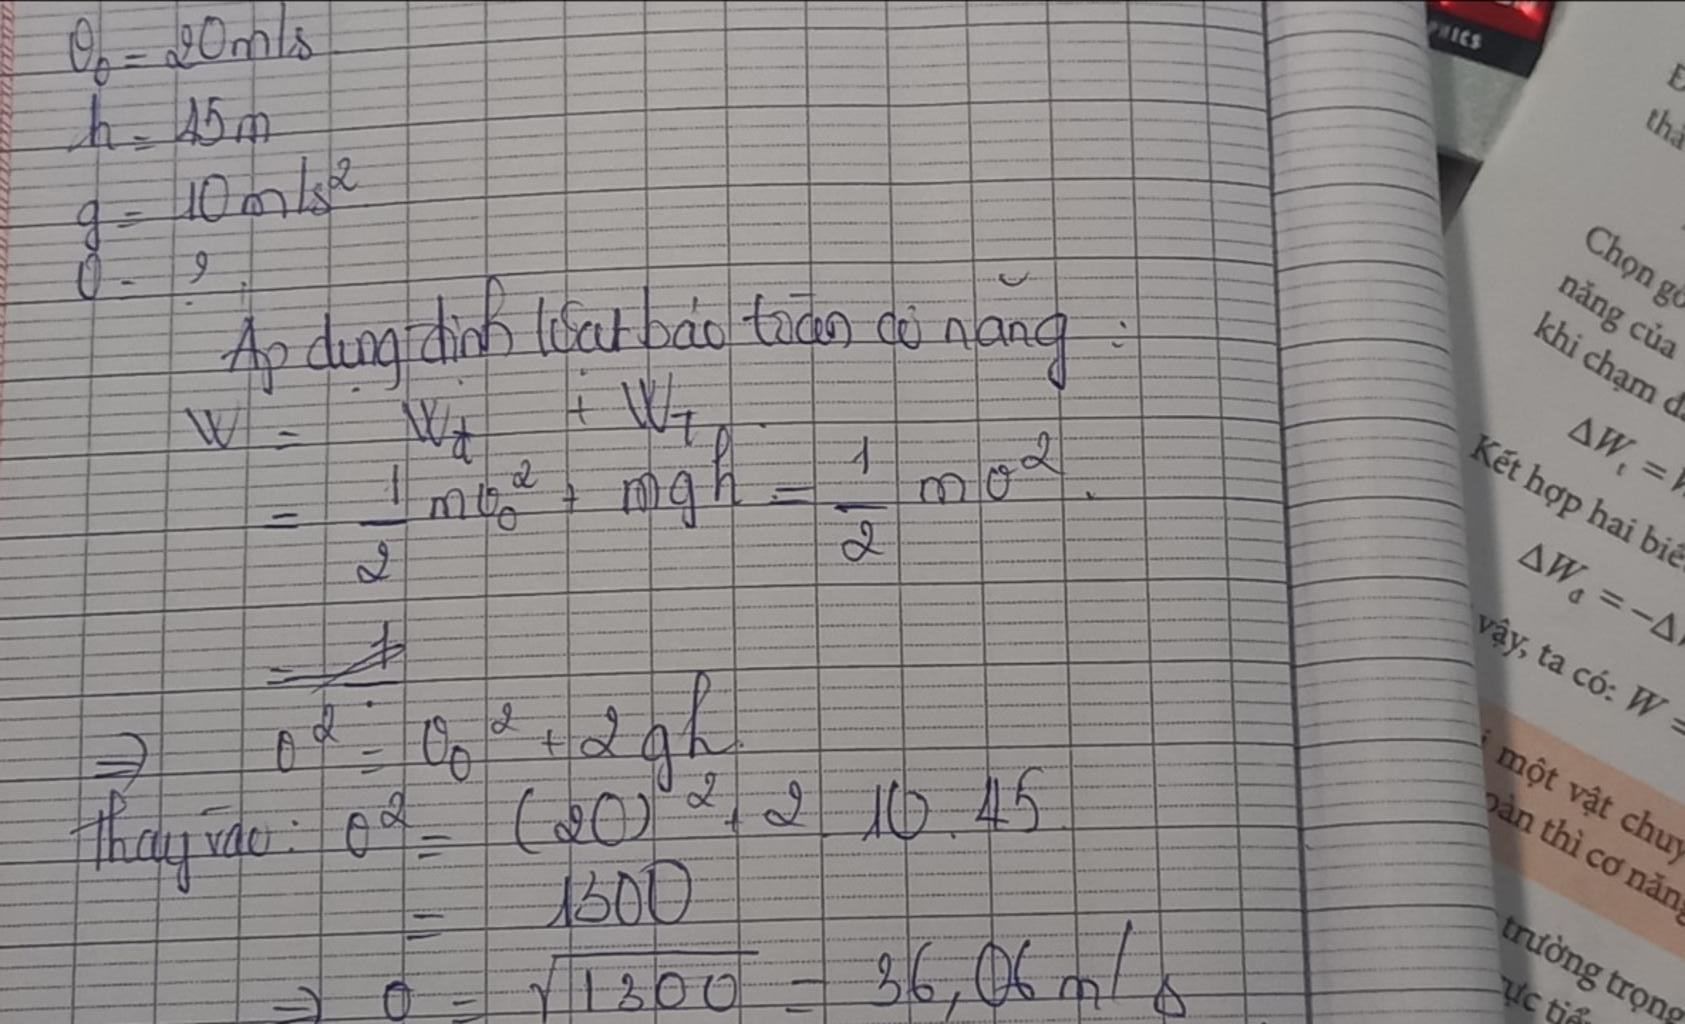 v₀ = 20 m/s
h = 45 m
g = 10 m/s²
v = ?
Áp dụng định luật bảo toàn cơ năng :
W = Wđ + WT
= 1/2 mv₀² + mgh = 1/2 mv².
⇒ v² = v₀² + 2gh
Thay vào: v² = (20)² + 2.10.45
= 1300
⇒ v = √1300 = 36,06 m/s
PHICS
Chọn gố
năng của
khi chạm đ
ΔWt =
Kết hợp hai biể
ΔWđ = -Δ
vậy, ta có: W =
một vật chuy
oàn thì cơ năng
trường trọng
ực tiế